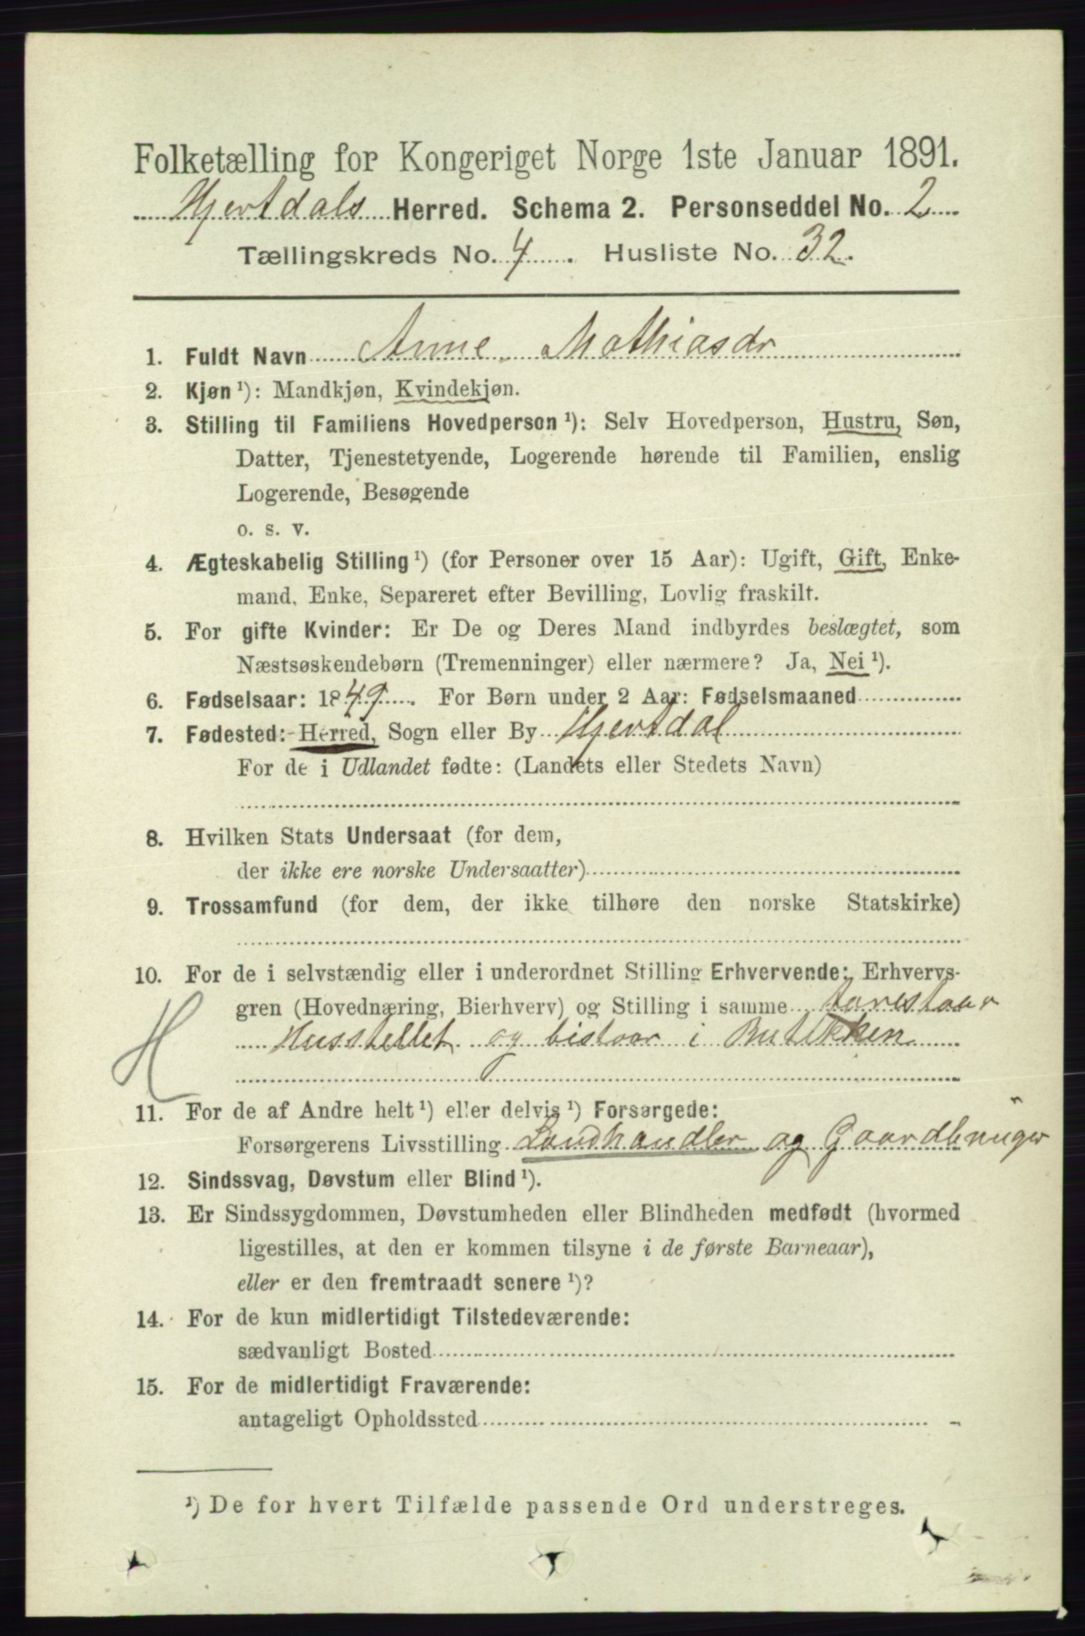 Folketælling for Kongeriget Norge 1ste Januar 1891.
Hjertdals Herred. Schema 2. Personseddel No. 2
Tællingskreds No. 4. Husliste No. 32.
1. Fuldt Navn Anne Mathiasdr
2. Kjøn ¹): Mandkjøn, Kvindekjøn.
3. Stilling til Familiens Hovedperson ¹): Selv Hovedperson, Hustru, Søn,
Datter, Tjenestetyende, Logerende hørende til Familien, enslig
Logerende, Besøgende
o. s. v.
4. Ægteskabelig Stilling ¹) (for Personer over 15 Aar): Ugift, Gift, Enke-
mand, Enke, Separeret efter Bevilling, Lovlig fraskilt.
5. For gifte Kvinder: Er De og Deres Mand indbyrdes beslægtet, som
Næstsøskendebørn (Tremenninger) eller nærmere? Ja, Nei ¹).
6. Fødselsaar: 1849. For Børn under 2 Aar: Fødselsmaaned
7. Fødested: Herred, Sogn eller By Hjertdal
For de i Udlandet fødte: (Landets eller Stedets Navn)
8. Hvilken Stats Undersaat (for dem,
der ikke ere norske Undersaatter)
9. Trossamfund (for dem, der ikke tilhøre den norske Statskirke)
10. For de i selvstændig eller i underordnet Stilling Erhvervende: Erhvervs-
gren (Hovednæring, Bierhverv) og Stilling i samme forestaar
H Husstellet og bistaar i Butikken
11. For de af Andre helt ¹) eller delvis ¹) Forsørgede:
Forsørgerens Livsstilling Landhandler og Gaardbruger
12. Sindssvag, Døvstum eller Blind ¹).
13. Er Sindssygdommen, Døvstumheden eller Blindheden medfødt (hvormed
ligestilles, at den er kommen tilsyne i de første Barneaar),
eller er den fremtraadt senere ¹)?
14. For de kun midlertidigt Tilstedeværende:
sædvanligt Bosted
15. For de midlertidigt Fraværende:
antageligt Opholdssted
¹) De for hvert Tilfælde passende Ord understreges.